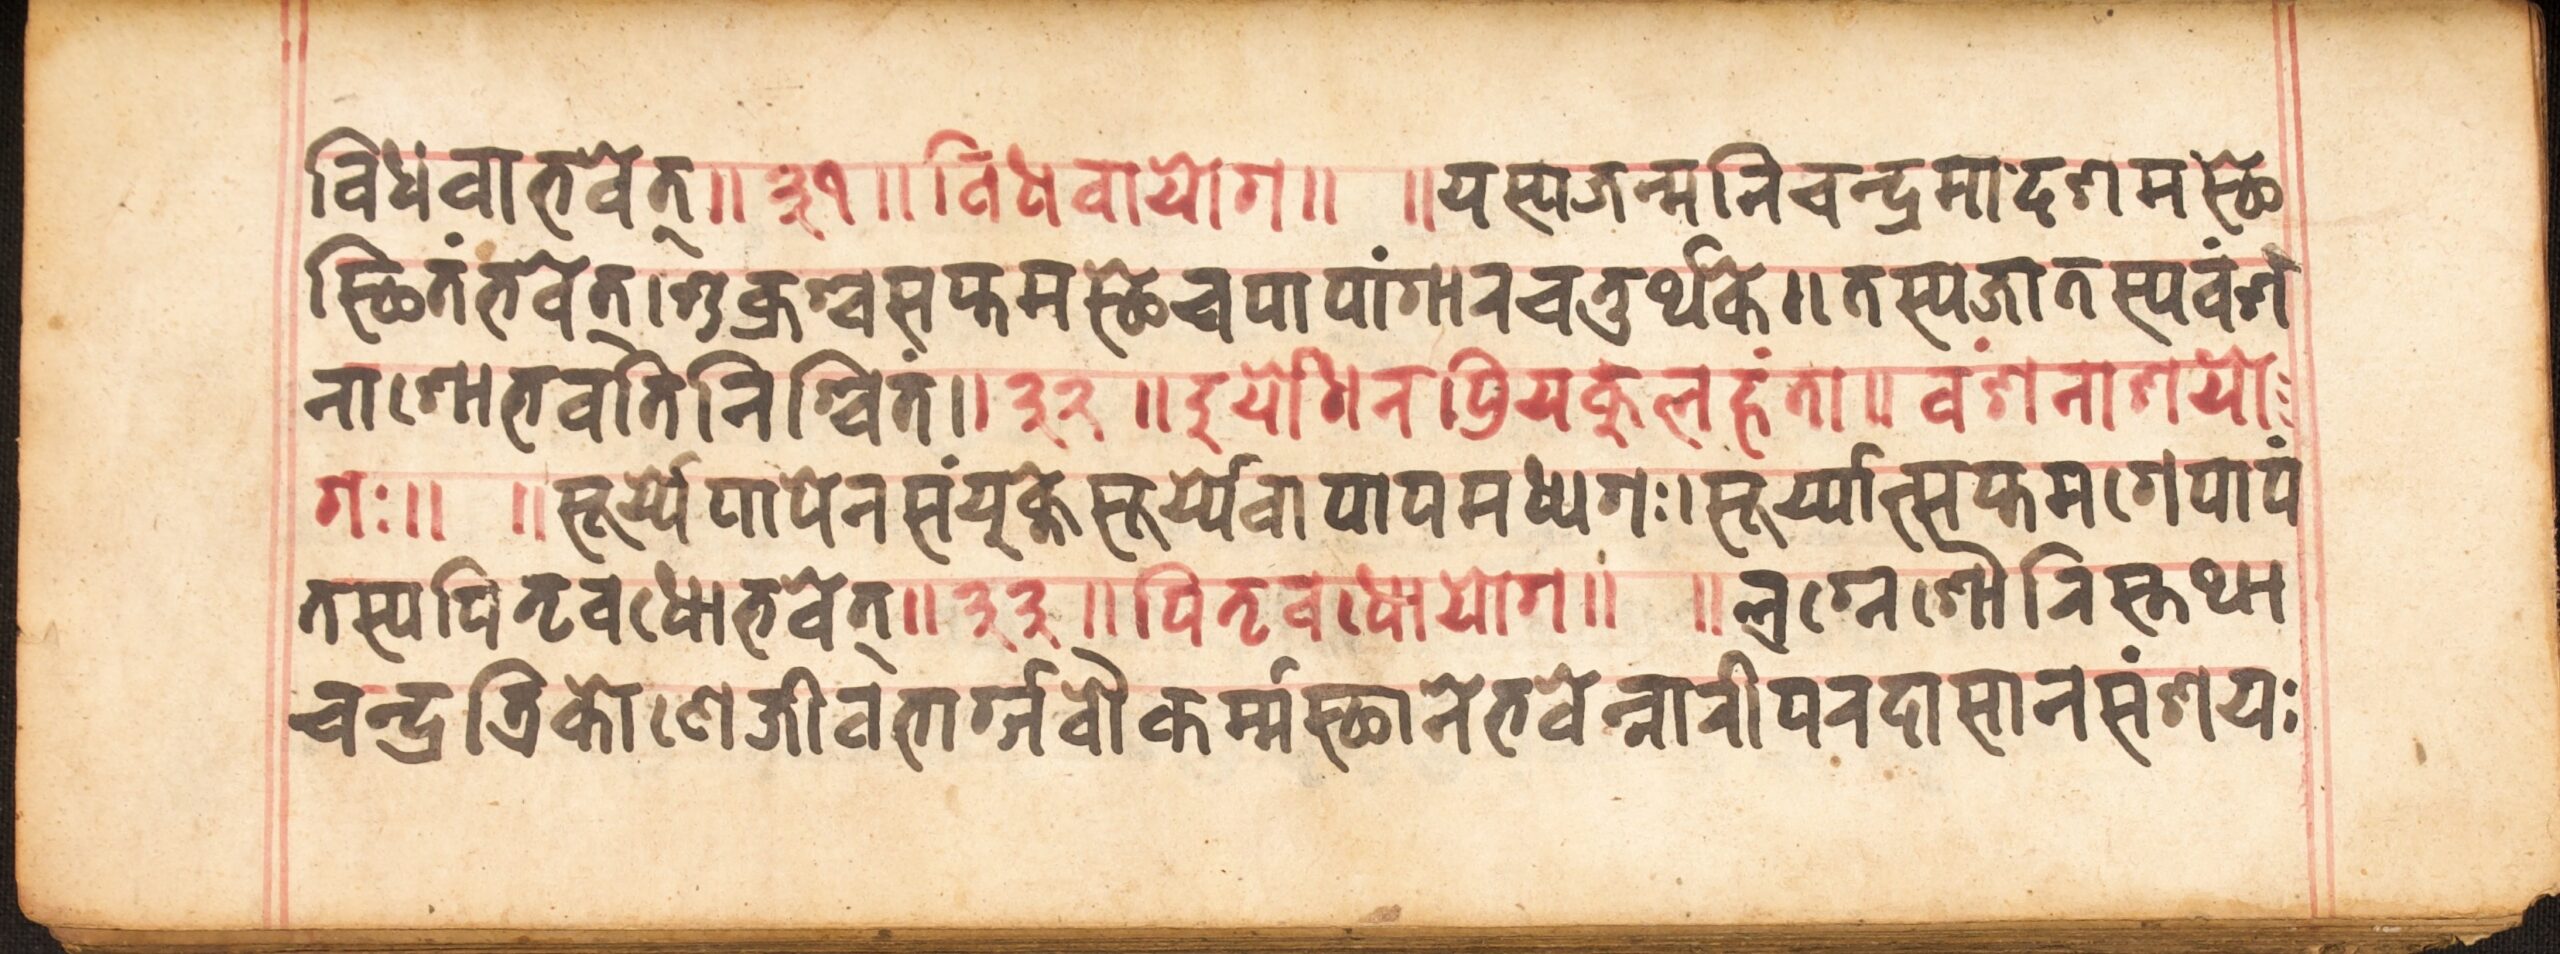 विधवाभवेत्॥३१॥विधवायोग॥ ॥यस्यजन्मनिचन्द्रमादशमस्छे
स्छितंभवेत्।शुक्रश्चसप्तमस्छेचपापांगारचतुर्थके॥तस्यजातस्यवंश
नाशोभवतिनिश्चितं॥३२॥दुर्योधनप्रियकुलहंता॥वंशनाशयो
गः॥ ॥सूर्य्येपापेनसंयुक्तेसूर्य्येवापापमध्यगः।सूर्य्यात्सप्तमगेपापं
तस्यपितृवधोभवेत्॥३३॥पितृवधोयोग॥ ॥लग्नेशौरिस्तथा
चन्द्रत्रिकोणेजीवभार्ग्गवौकर्म्मस्छानेभवेन्नारीपरदासानसंशयः